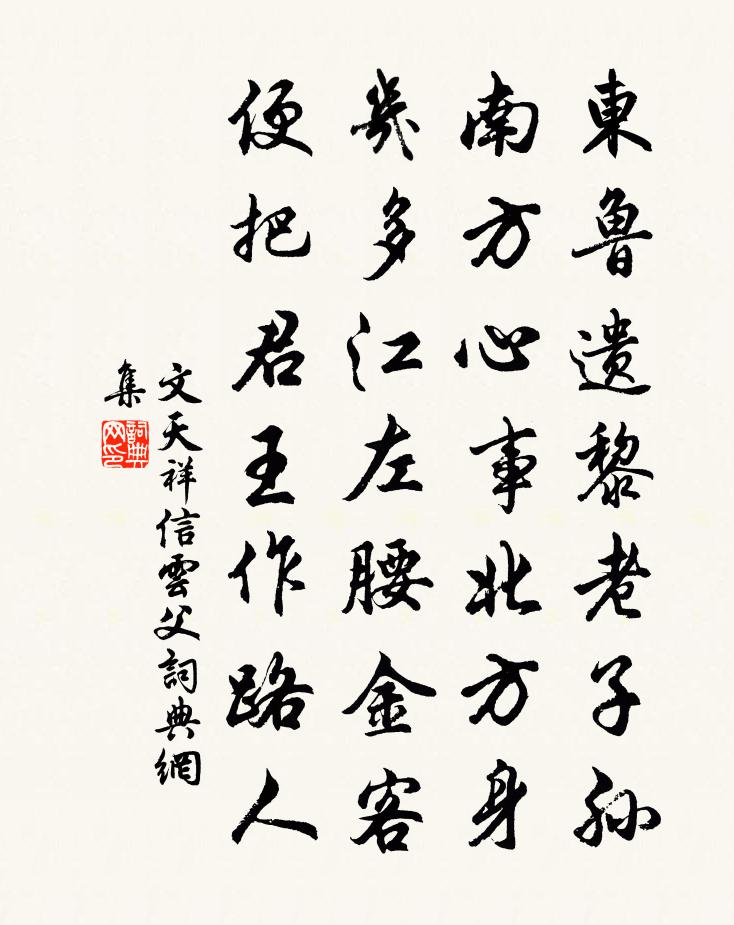 東魯遺黎老子孫
南方心事北方身
幾多江左腰金客
便把君王作路人
文天祥信雲父詞典網
集
詞典
网印